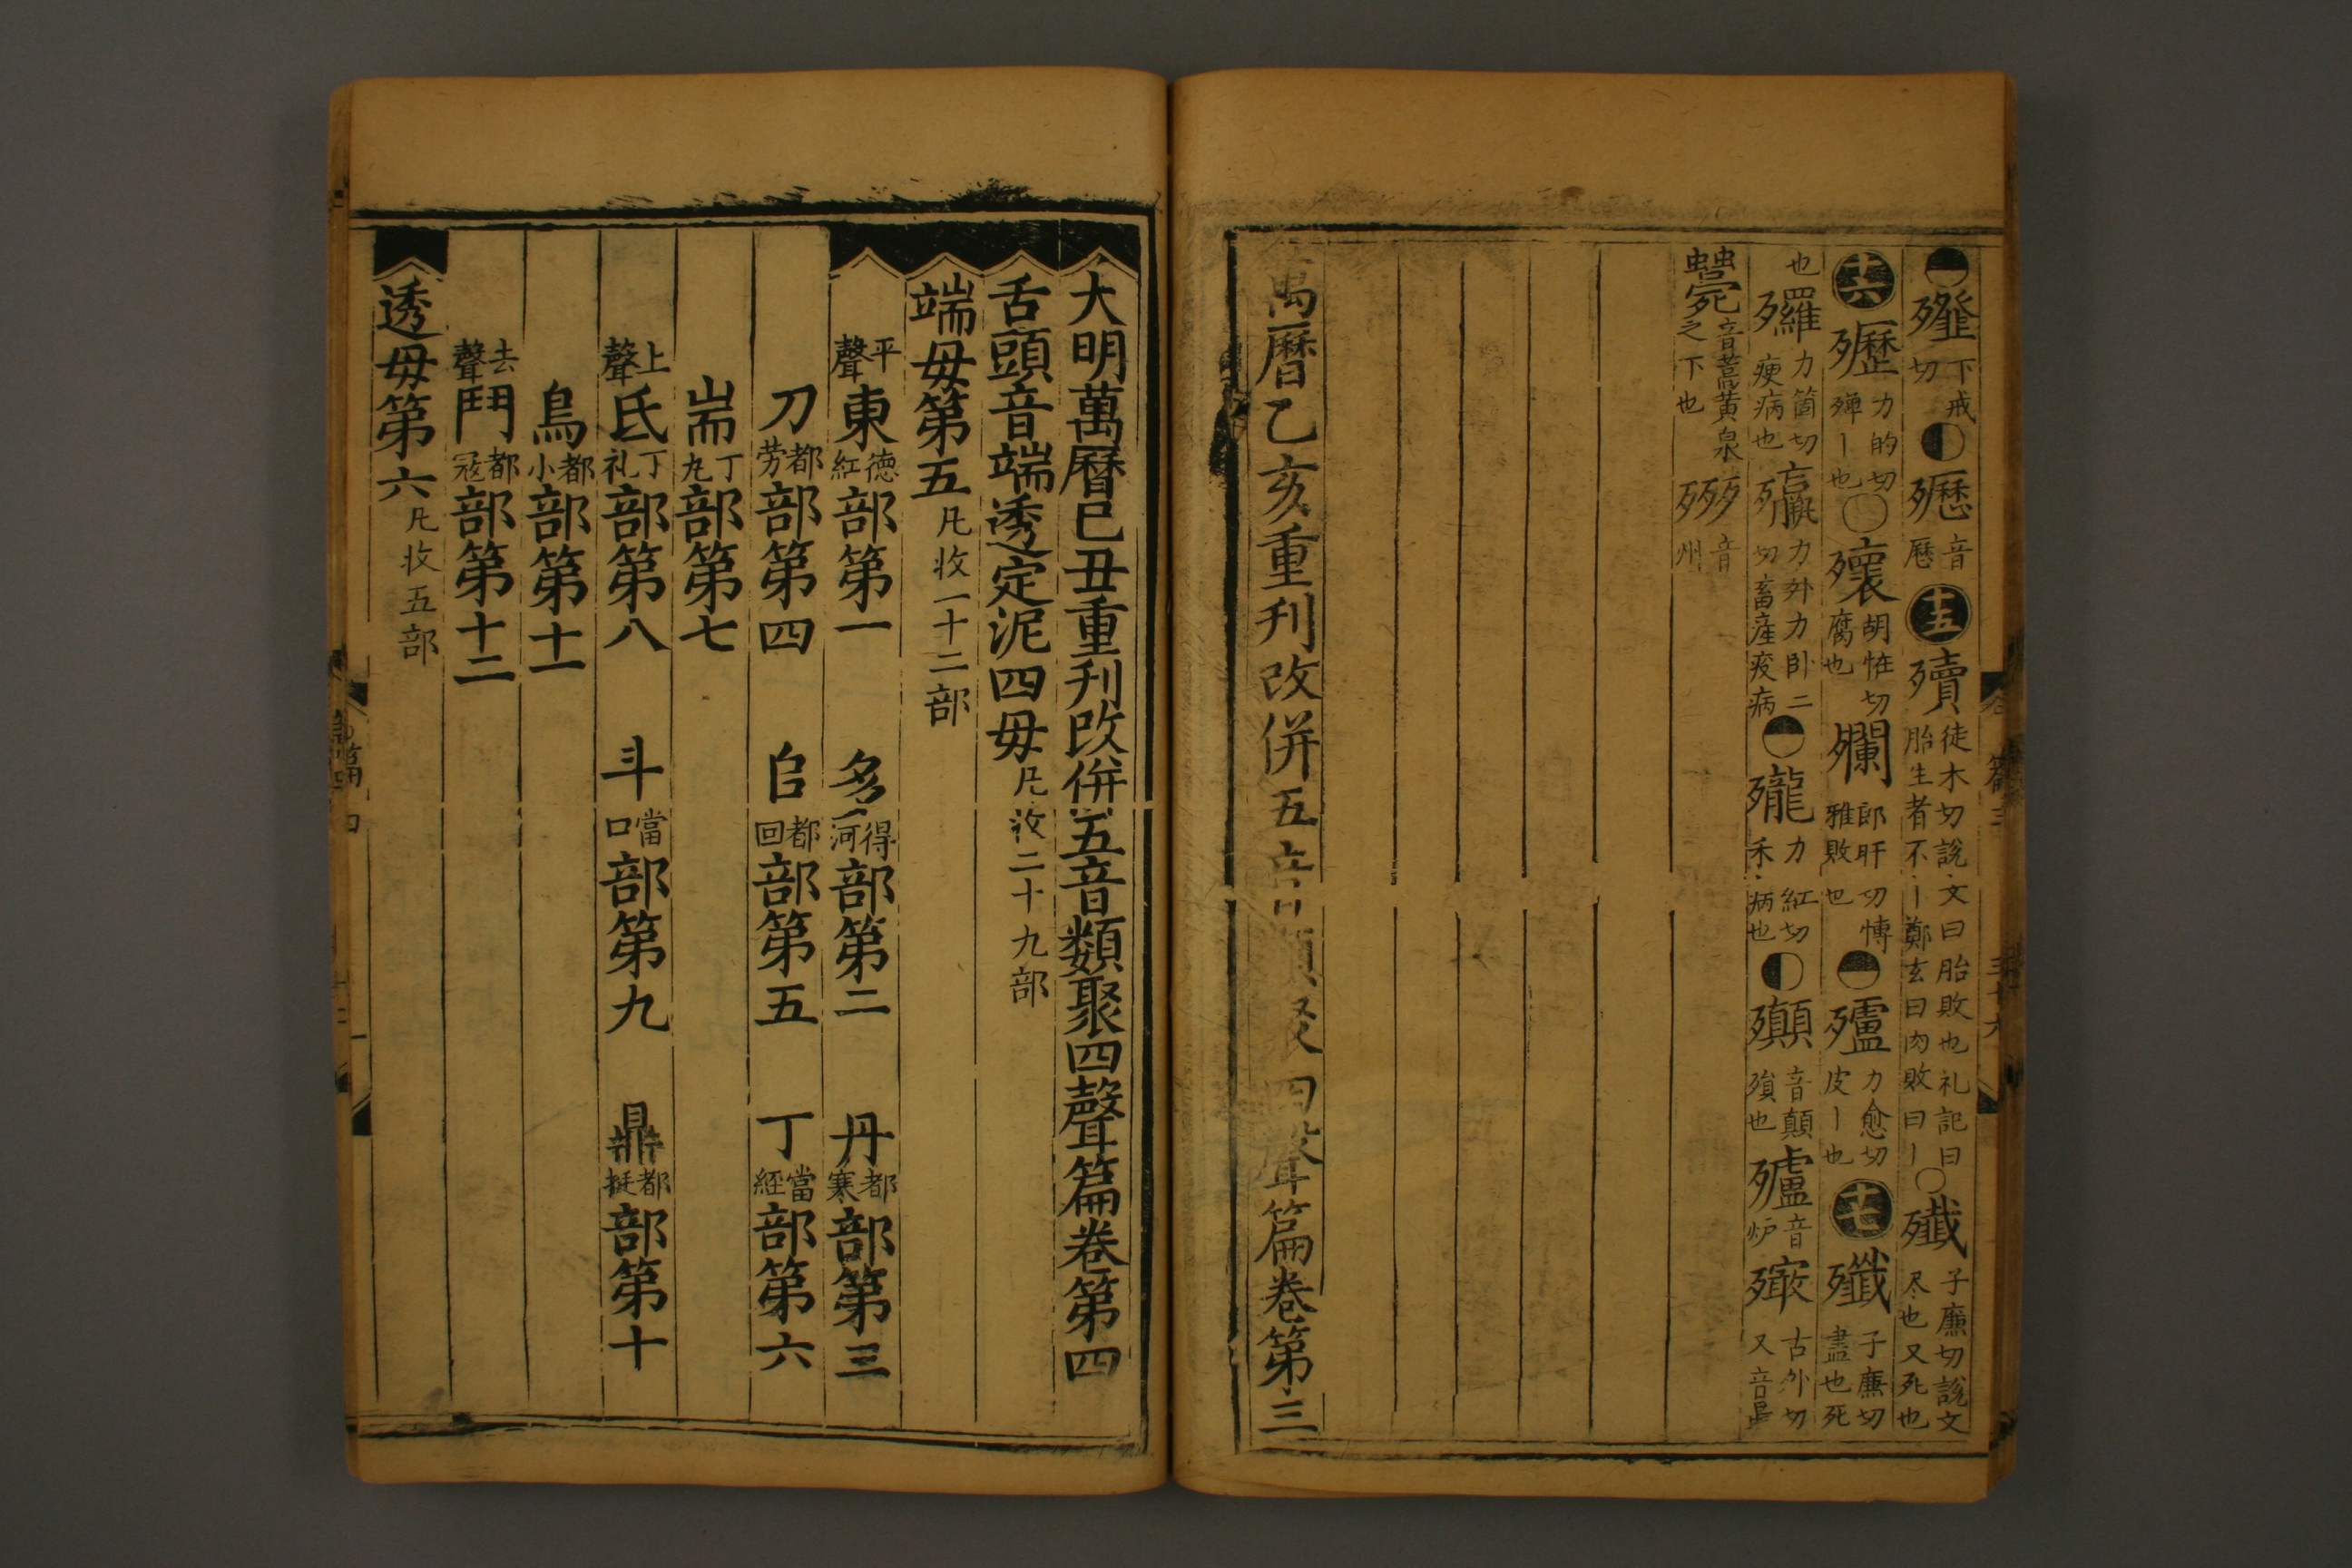 下戒切 㱤 音歷 十五 殰 徒木切說文曰胎敗也礼記曰胎生者不丨鄭玄曰內敗曰丨 殱 子廉切說文尽也又死也
十六 力的切殫丨也 壞 胡恠切腐也 爛 郎旰切慱雅敗也 力愈切皮丨也 十七 殲 子廉切盡也死
也 力箇切㾐病也 力外力卧二切畜産疫病 力紅切禾病也 音顛殞也 音炉 古外切又音最
音蒿黃泉之下也 音州
萬曆乙亥重刊改併五音類聚四聲篇卷第三
大明萬曆己丑重刊改併五音類聚四聲篇卷第四
舌頭音端透定泥四毋 凡收二十九部
端毋第五 凡收一十二部
平聲 東 德紅 部第一 多 得河 部第二 丹 都寒 部第三
刀 都劳 部第四 𠂤 都回 部第五 丁 當經 部第六
耑 丁九 部第七
上聲 氐 丁礼 部第八 斗 當口 部第九 鼎 都挺 部第十
鳥 都小 部第十一
去聲 鬥 都寇 部第十二
透毋第六 凡收五部